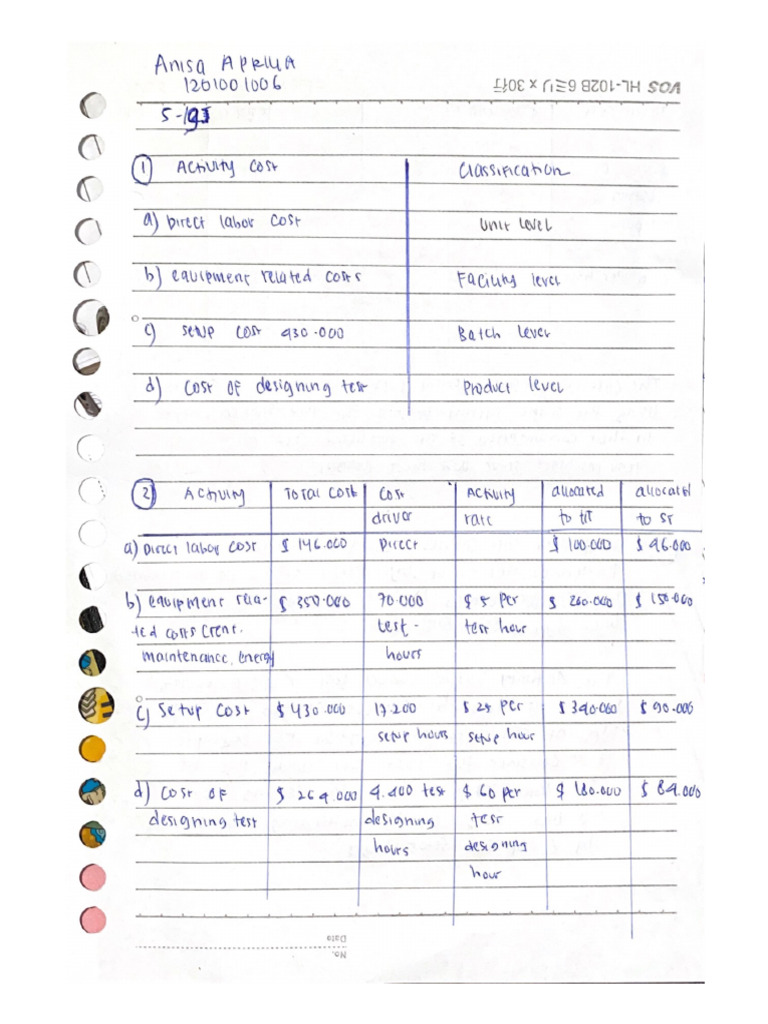 Anisa APRILIA
1201001006
VOS HL-102B 6ミリ x 30行
5-19
① Activity cost Classification
a) Direct labor cost Unit level
b) equipment related costs Facility level
c) setup cost 430.000 Batch level
d) cost of designing test Product level
② Activity Total cost Cost Activity allocated allocated
driver rate to HT to ST
a) Direct labor cost $ 146.000 Direct $ 100.000 $ 46.000
b) equipment rela- $ 350.000 70.000 $ 5 per $ 200.000 $ 150.000
ted costs (rent. test - test hour
maintenance, energy hours
c) Setup cost $ 430.000 17.200 $ 25 per $ 340.000 $ 90.000
setup hours setup hour
d) cost of $ 264.000 4.400 test $ 60 per $ 180.000 $ 84.000
designing test designing test
hours designing
hour
Date
No.